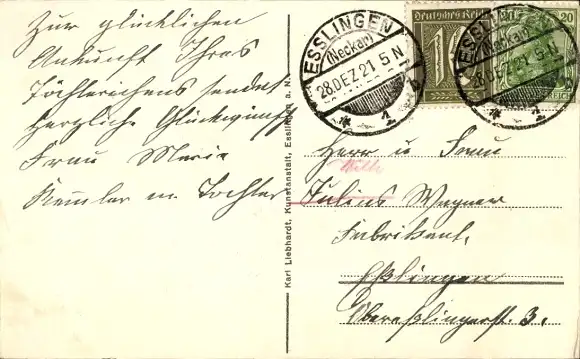 Zur glücklichen
Ankunft Ihres
Töchterchens sendet
herzliche Glückwünsche
Frau Maria
Kemmler m. Tochter
Karl Liebhardt, Kunstanstalt, Esslingen a. N.
Deutsches Reich
10
20
ESSLINGEN
(Neckar)
28.DEZ.21 5 N
* 1
ESSLINGEN
(Neckar)
28.DEZ.21 5 N
* 1
Herr u Frau
Julius Wagner
Fabrikant,
Eßlingen
Obereßlingerst. 3.